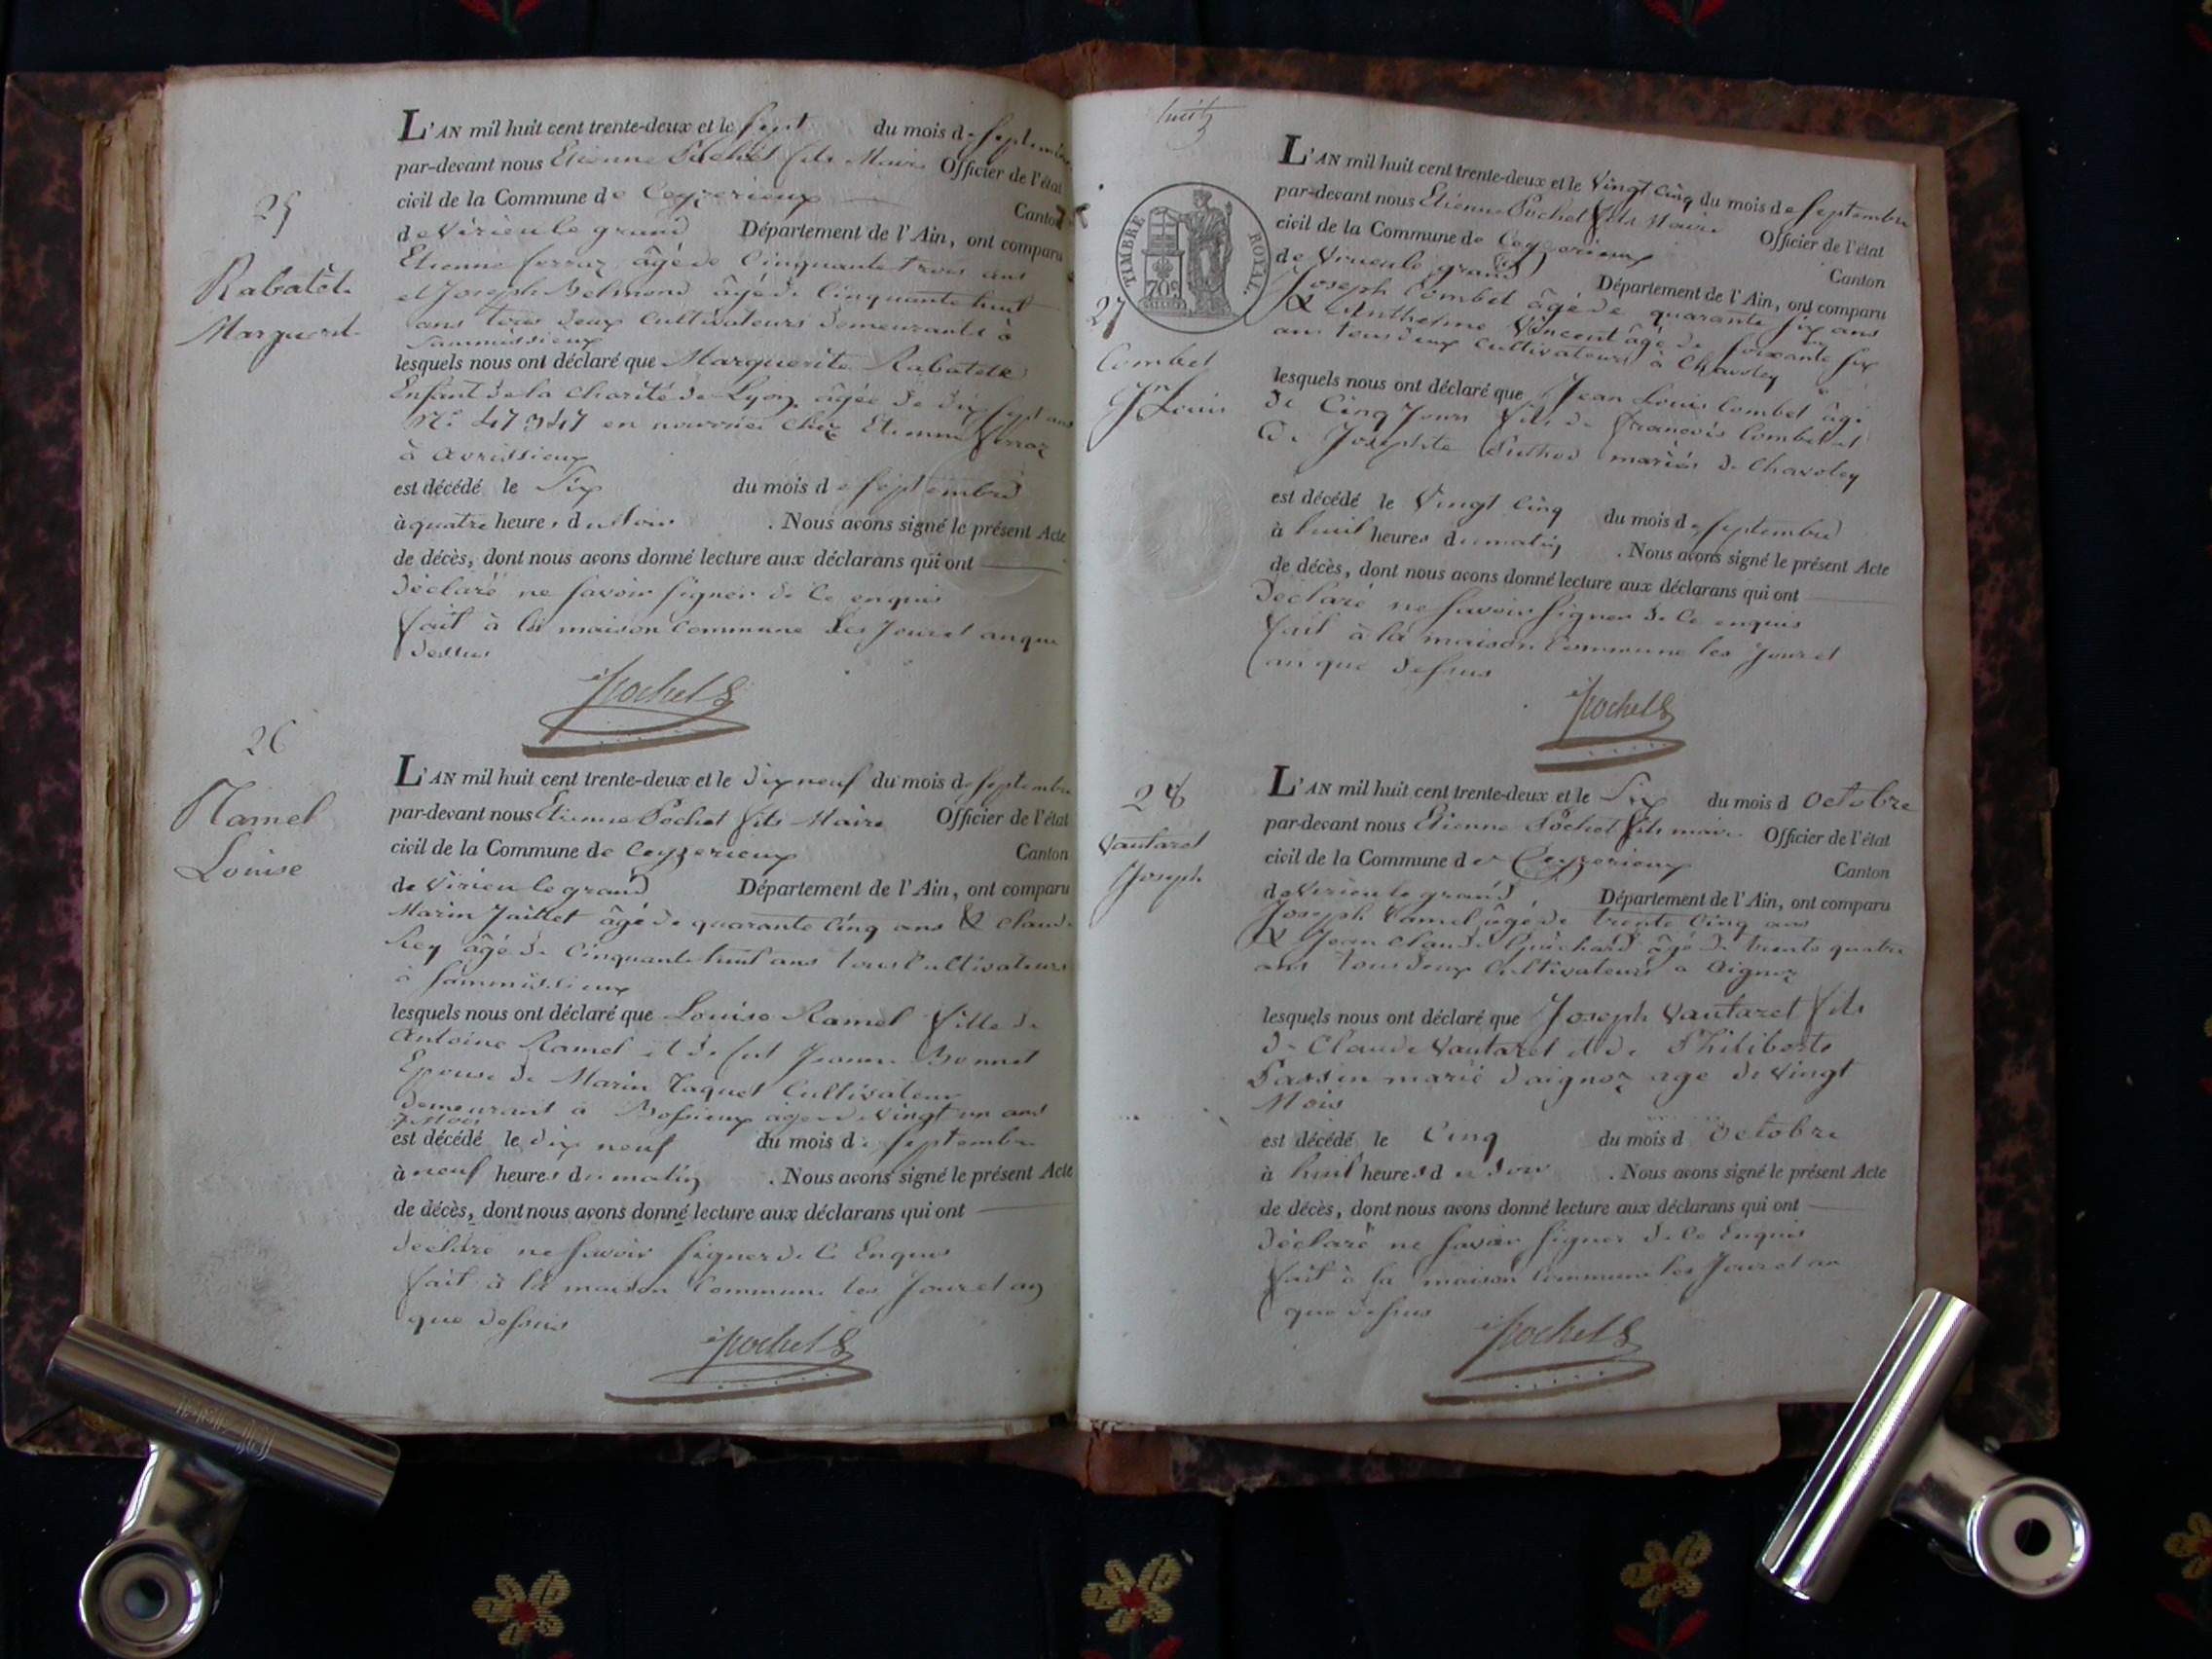 25
Rabatel
Marguerit
L'AN mil huit cent trente-deux et le sept du mois de septembre
par-devant nous Etienne Pochet fils Maire Officier de l'état
civil de la Commune de Ceyzerieux Canton
de Virieu le grand Département de l'Ain, ont comparu
Etienne ferraz âgé de Cinquante trois ans
et Joseph Belmond âgé de Cinquante huit
ans tous deux Cultivateurs demeurants à
lesquels nous ont déclaré que Marguerite
Enfant de la Charité de Lyon âgée de dix sept ans
N° 47347 en nourrice chez Etienne ferraz
à avrissieux
est décédé le Six du mois de septembre
à quatre heures du soir . Nous avons signé le présent Acte
de décès, dont nous avons donné lecture aux déclarans qui ont
déclaré ne savoir signer de Ce enquis
fait à la maison Commune les Jour et an que
dessus
Pochet
26
Ramel
Louise
L'AN mil huit cent trente-deux et le dix neuf du mois de septembre
par-devant nous Etienne Pochet fils Maire Officier de l'état
civil de la Commune de Ceyzerieux Canton
de Virieu le grand Département de l'Ain, ont comparu
Marin Jaillet âgé de quarante Cinq ans & Claude
Rey âgé de Cinquante huit ans tous Cultivateurs
à sammissieux
lesquels nous ont déclaré que Louise Ramel fille de
Antoine Ramel et de fut Jeanne Bonnet
Epouse de Marin Taquet Cultivateur
demeurant à âgée de vingt un ans
7 Mois
est décédé le dix neuf du mois de septembre
à neuf heures du matin . Nous avons signé le présent Acte
de décès, dont nous avons donné lecture aux déclarans qui ont
déclaré ne savoir signer de Ce Enquis
fait à la maison Commune les Jour et an
que dessus
Pochet
huit
TIMBRE ROYAL.
70c
27
Combet
Jn Louis
L'AN mil huit cent trente-deux et le Vingt Cinq du mois de septembre
par-devant nous Etienne Pochet fils Maire Officier de l'état
civil de la Commune de Ceyzerieux Canton
de Virieu le grand Département de l'Ain, ont comparu
Joseph Combet âgé de quarante six ans
& Anthelme Vincent âgé de soixante six
ans tous deux Cultivateurs à Chavoley
lesquels nous ont déclaré que Jean Louis Combet âgé
de Cinq Jours fils de francois Combet et
de Josephte mariés de Chavoley
est décédé le Vingt Cinq du mois de septembre
à huit heures du matin . Nous avons signé le présent Acte
de décès, dont nous avons donné lecture aux déclarans qui ont
déclaré ne savoir signer de Ce enquis
fait à la maison Commune les Jour et
an que dessus
Pochet
28
Vautaret
Joseph
L'AN mil huit cent trente-deux et le Six du mois d Octobre
par-devant nous Etienne Pochet fils maire Officier de l'état
civil de la Commune de Ceyzerieux Canton
de Virieu le grand Département de l'Ain, ont comparu
Joseph Ramel âgé de trente Cinq ans
& Jean Claude Guichard âgé de trente quatre
ans tous deux Cultivateurs a aignoz
lesquels nous ont déclaré que Joseph Vautaret fils
de Claude Vautaret et de Philiberte
Passin marié daignoz age de vingt
Mois
est décédé le Cinq du mois d Octobre
à huit heures du soir . Nous avons signé le présent Acte
de décès, dont nous avons donné lecture aux déclarans qui ont
déclaré ne savoir signer de Ce Enquis
fait à la maison Commune les Jour et an
que dessus
Pochet